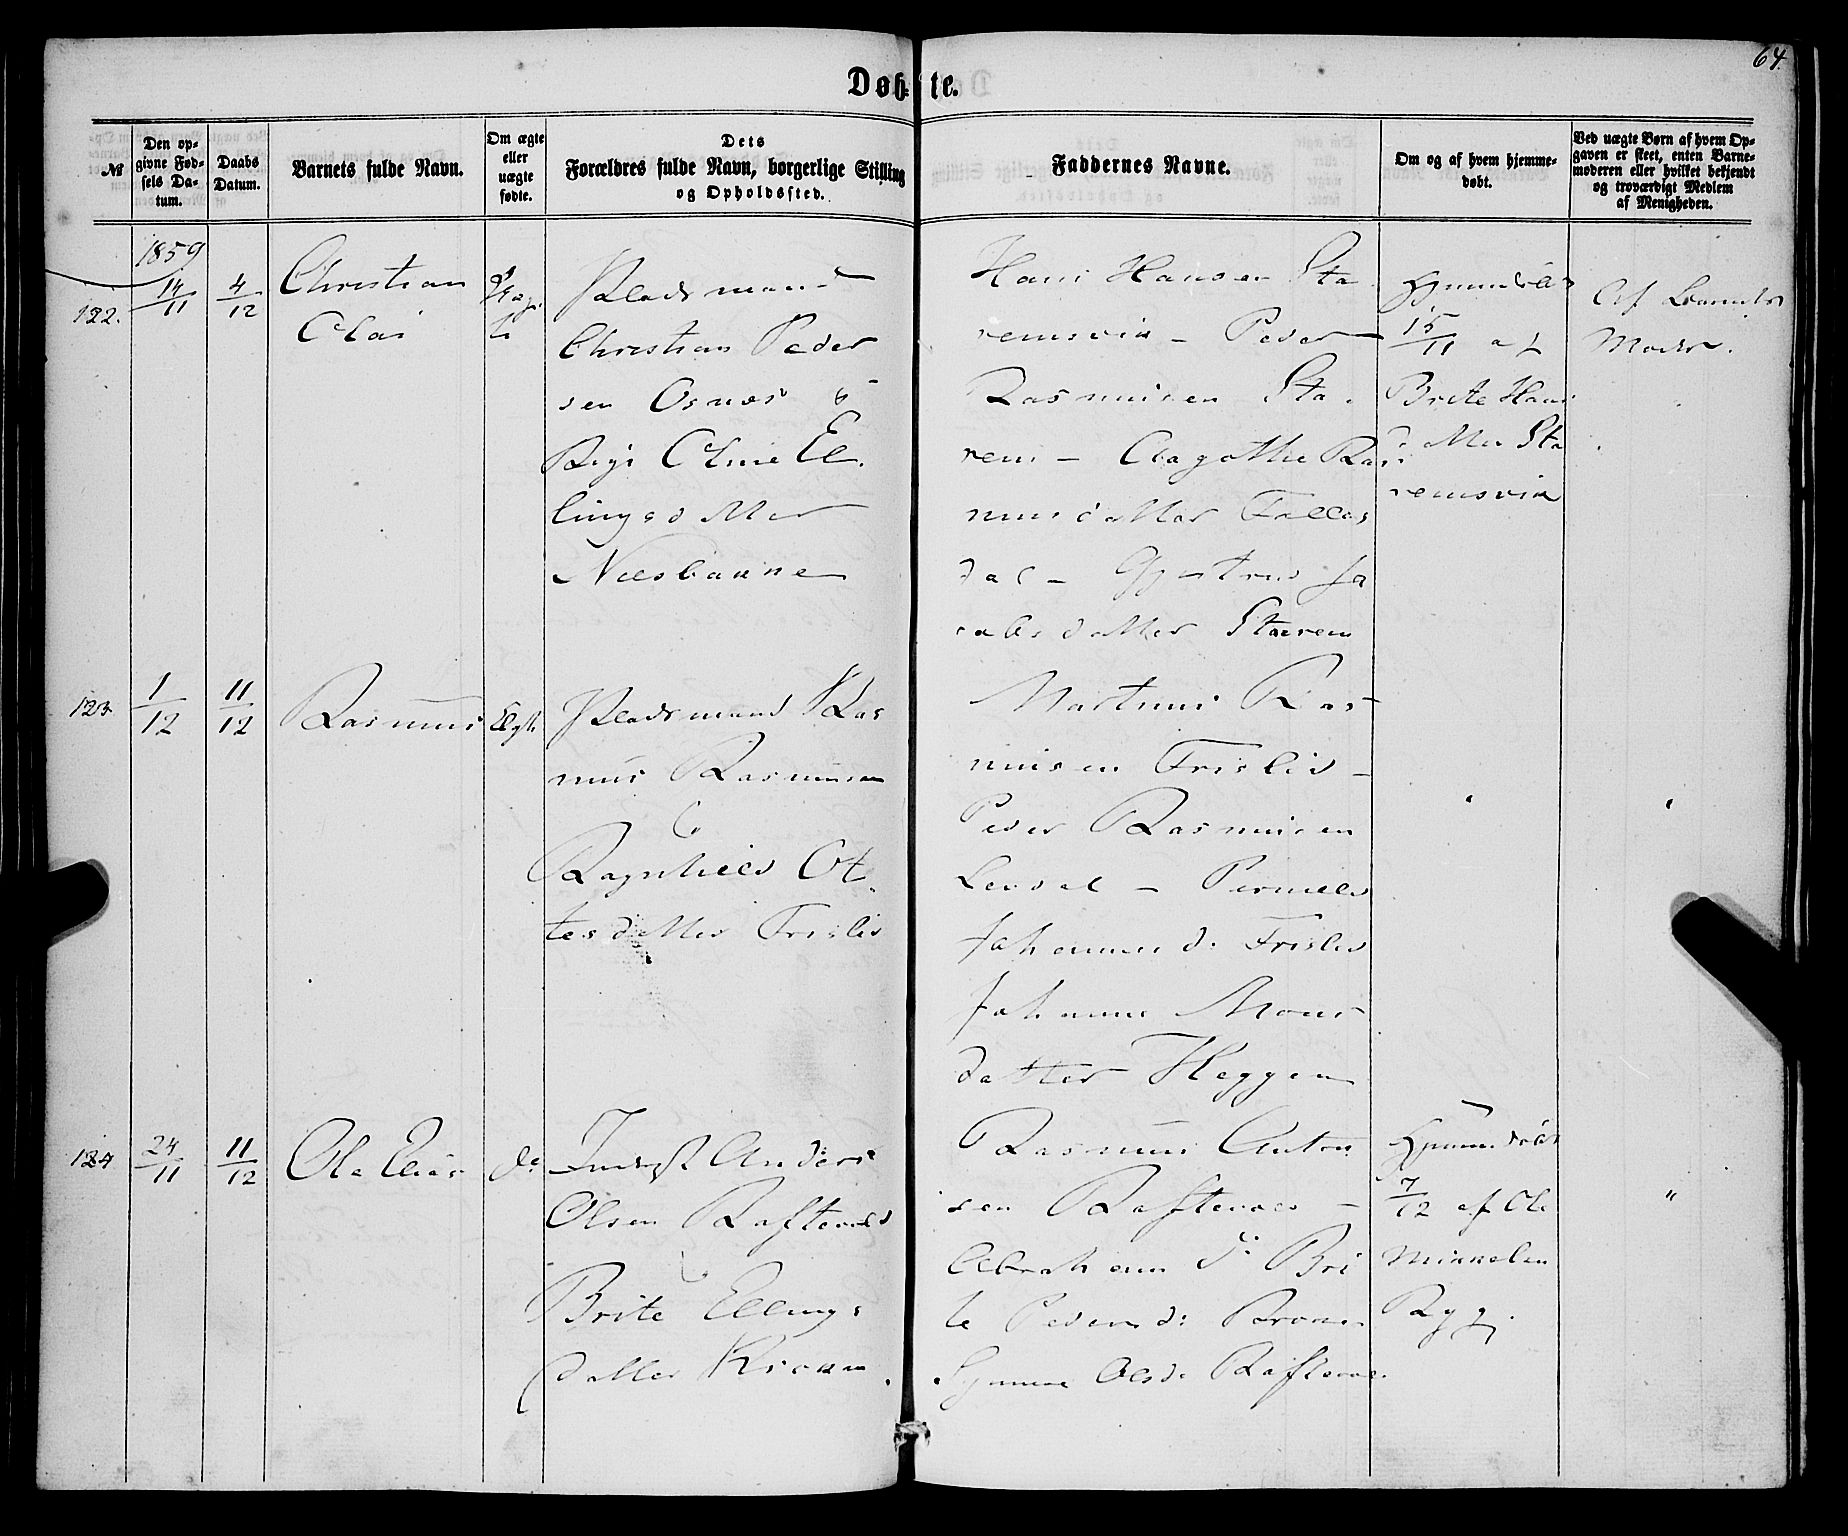 64.
Døbte.
№
Den op-
givne Fød-
sels Da-
tum.
Daabs
Datum.
Barnets fulde Navn.
Om ægte
eller
uægte
fødte.
Dets
Forældres fulde Navn, borgerlige Stilling
og Opholdssted.
Faddernes Navne.
Om og af hvem hjemme-
døbt.
Ved uægte Børn af hvem Op-
gaven er skeet, enten Barne-
moderen eller hvilket bekjendt
og troværdigt Medlem
af Menigheden.
1859
122.
14/11
4/12
Christian
Uæg-
te
Pladsmand
Christian Peder
sen Osnæs &
Pige El
lingsdatter
Hans Hansen Sta
remsvik - Peder
Rasmusen Sta
rem - Ras
musdatter
dal - Ja
cobsdatter Starem
Hjemmedøbt
15/11 af
Brite Hans
datter Sta
remsvik
Af Barnets
Moder.
123.
1/12
11/12
Rasmus
Ægte
Pladsmand Ras
mus Rasmusen
&
Ragnhild Ot
tesdatter Frislid
Martinus Ras
musen Frislid -
Peder Rasmusen
- Pernille
Johannesd: Frislid
Johanne Mons
datter Heggen
124
24/11
11/12
Ole Elias
do
Inderst Anders
Olsen Raftenæs
&
Brite Ellings
datter
Rasmus Anton
sen Raftenæs -
Abraham do Bri
te Pedersd:
Olsd. Raftenæs
Hjemmedøbt
7/12 af Ole
Mikkelsen
Ryg.
"